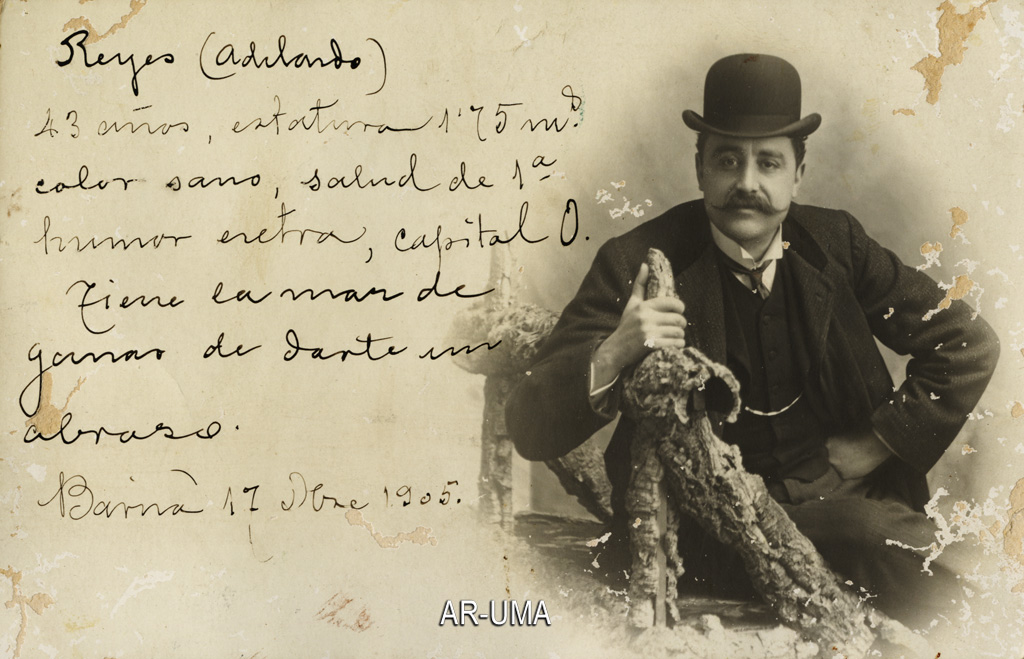 Reyes (Adelardo)
43 años, estatura 1'75 m.s
color sano, salud de 1ª
humor eretra, capital 0.
Tiene la mar de
ganas de darte un
abraso.
Barnà 17 Dbre 1905.
AR-UMA